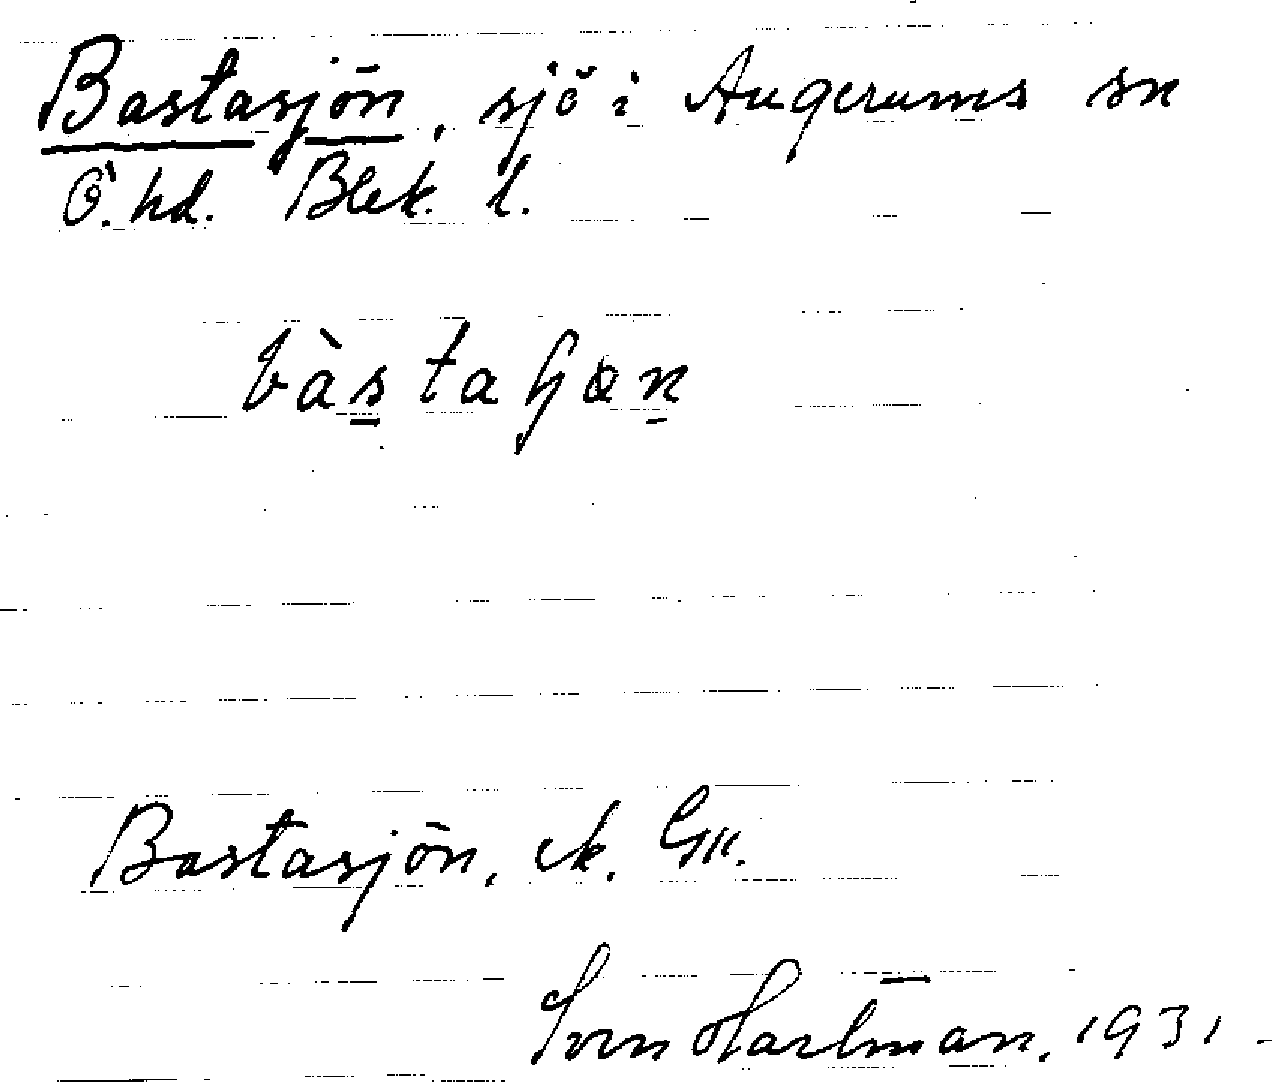 Bastasjön, sjö i Augerums sn
Ö. hd. Blek. l.
Bastasjön, ek.
Sven Hartman, 1931